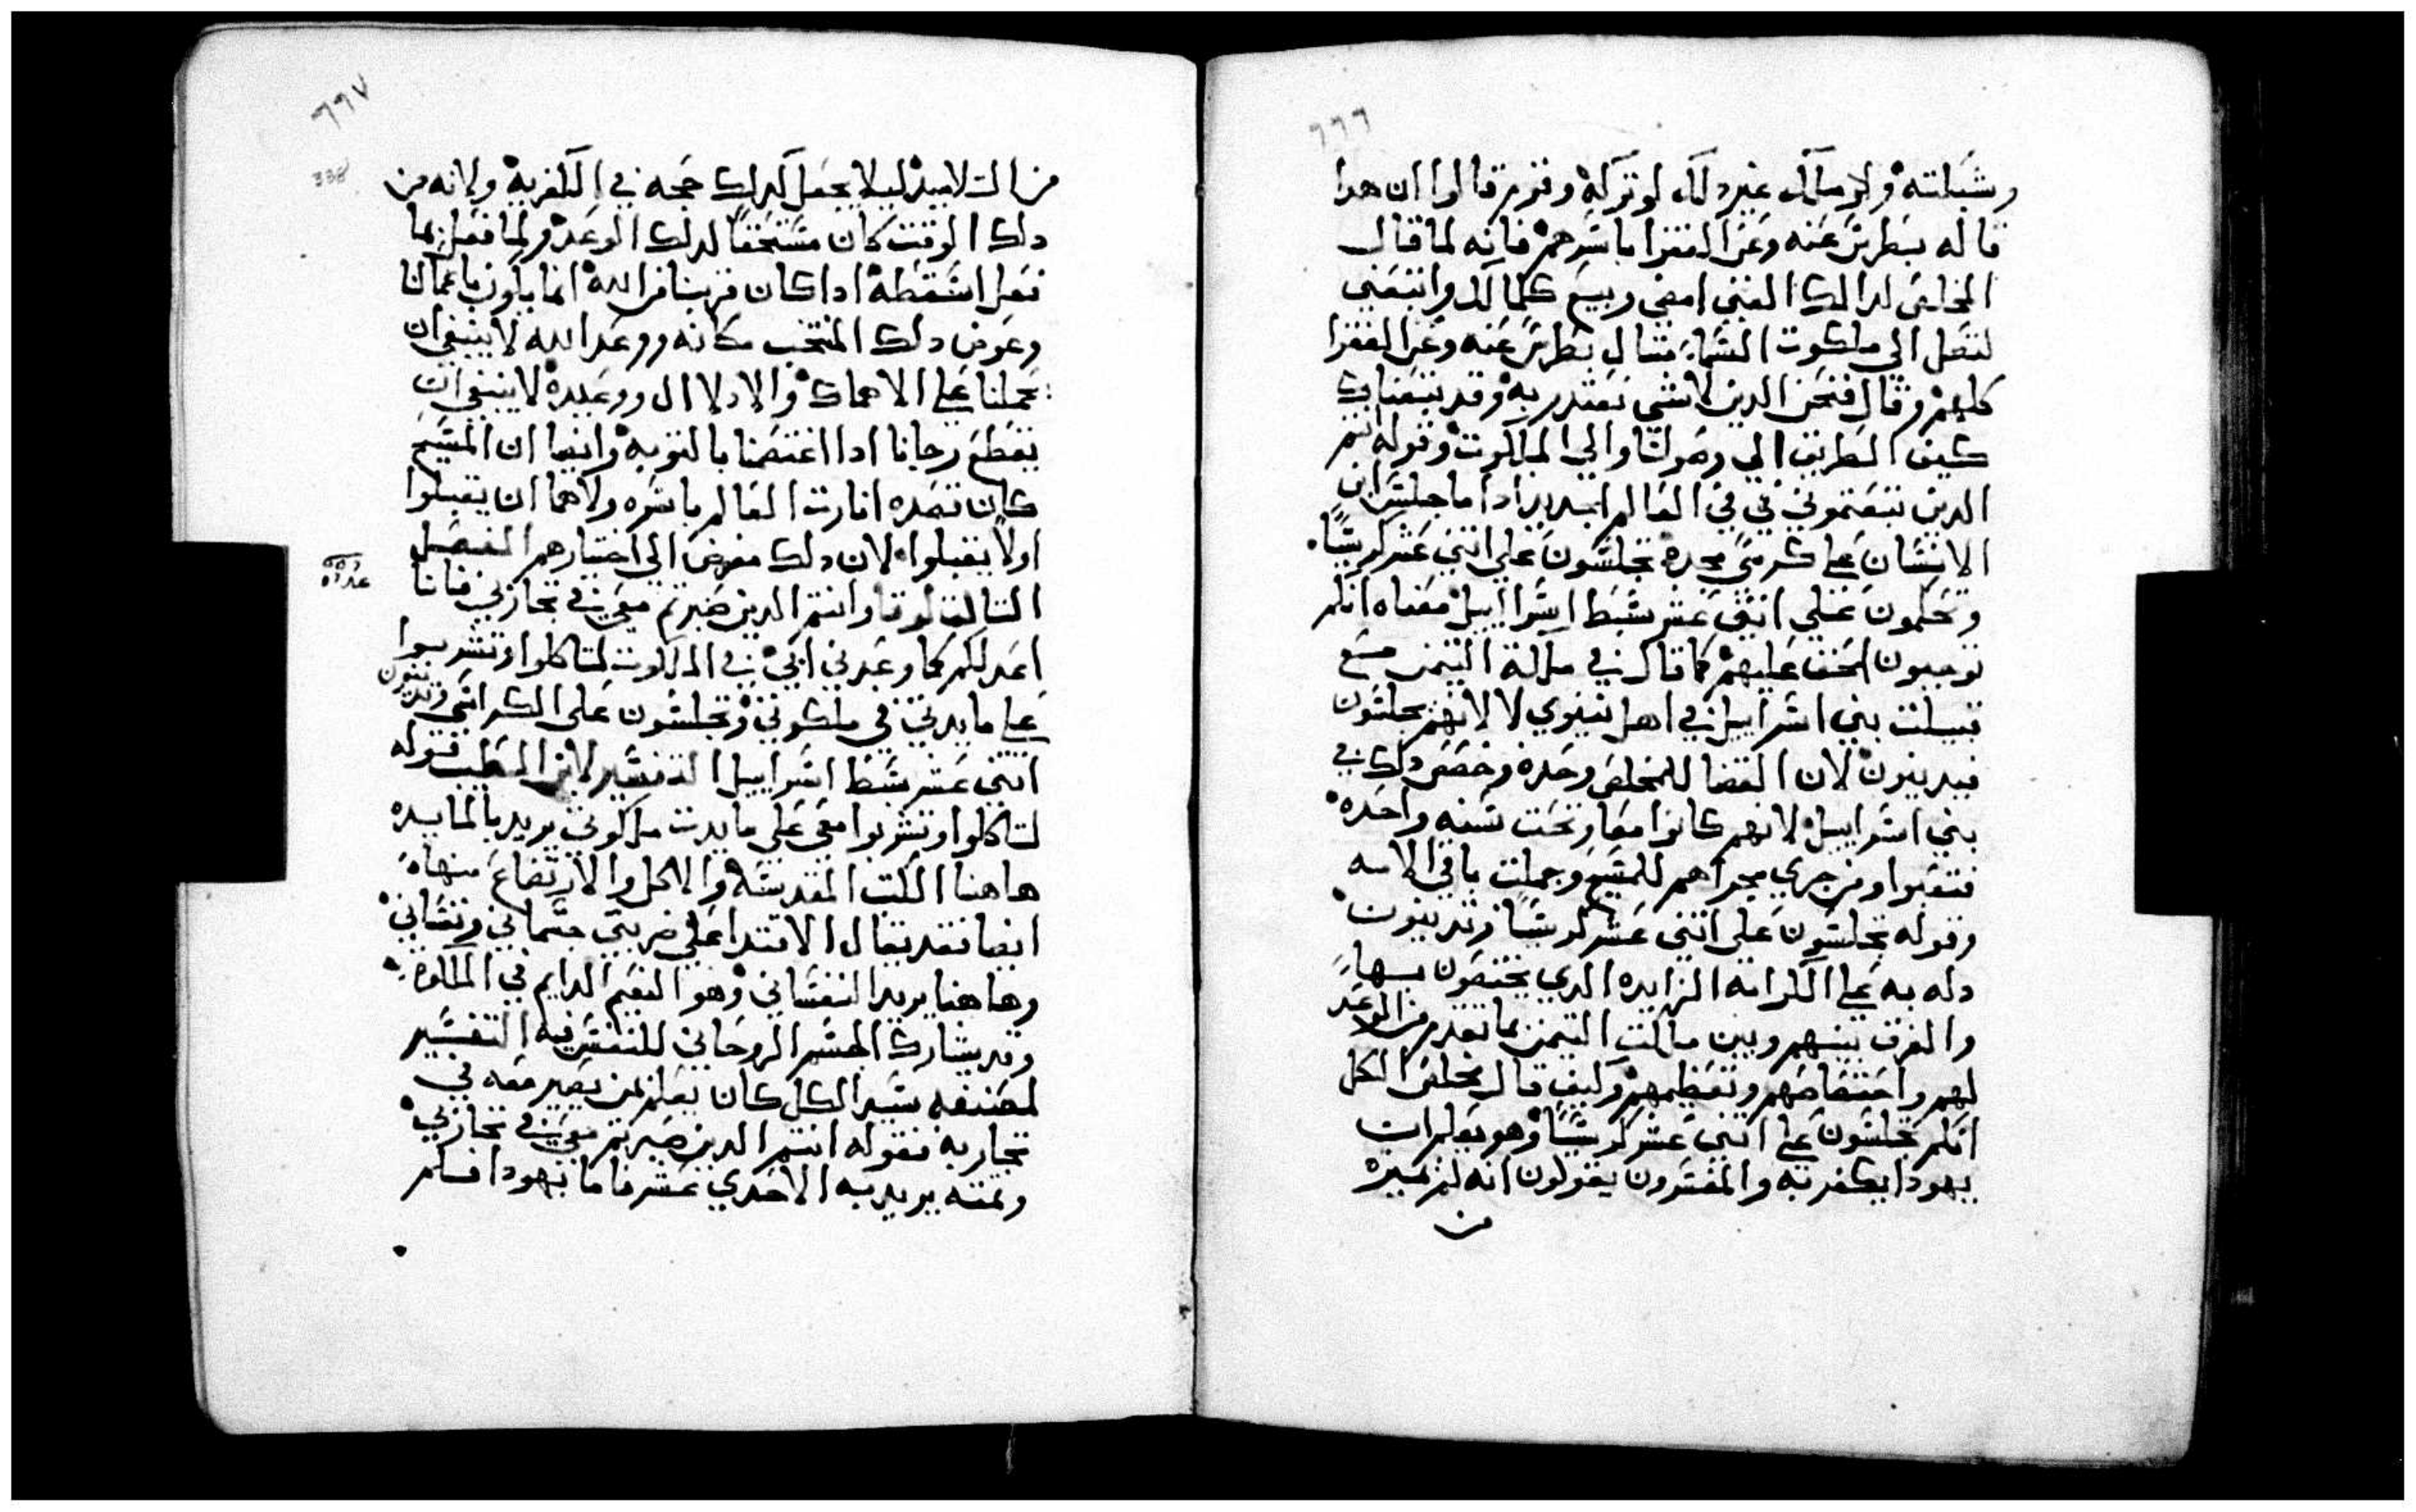 ٦٦٦
وشبكته ولو ملك غير دلك لو تركه وقوم قالوا ان هدا
قاله بطرس عنه وعن الفقرا باسرهم فانه لما قال
المخلص لدالك الغني امضي وبيع كلما لك واتبعني
لتصل الي ملكوت السما فقال بطرس عنه وعن الفقرا
كلهم وقال فنحن الدين لا شي نقتدر به وقد تبعناك
كيف الطريق الي وصولنا الي الملكوت وقوله انتم
الدين تبعتموني في في العالم الجديد ادا ما جلس ابن
الانسان علي كرسي مجده تجلسون علي اتني عشر كرسيا
وتحكمون علي اتني عشر سبط اسراييل معناه انكم
توجبون الحق عليهم كما قال في ملكة التيمن مع
قبيلت بني اسراييل في اهل نينوي لا لانهم يجلسون
فيدينون لان القضا للمخلص وحده وخصص دلك في
بني اسراييل لانهم كانوا معا وتحت سنه واحده
فتعبوا ومن جري مجراهم للمسيح وجملت باقي الامه
وقوله تجلسون علي اتني عشر كرسيا وتدينون
دله به علي الكرامه الزايده الدي يختصون بها
والفرق بينهم وبين ملكت التيمن بما تقدم من الوعد
لهم واختصاصهم وتعظيمهم وكيف قال مخلص الكل
انكم تجلسون علي اتني عشر كرسيا وهو يعلم ان
يهودا يكفر به والمفسرون يقولون انه لم يميزه
من
٦٦٧
338
من التلاميد ليلا يجعل لدلك حجه في الكفر به ولانه من
دلك الوقت كان مستحقا لدلك الوعد ولما فعل بما
فعل اسقطه ادا كان قربنا من الله انما يكون باعمالنا
وعوض دلك المنتخب مكانه ووعد الله لا ينبغي ان
يحملنا علي الاهماك والادلال ووعيده لا ينبغي ان
يقطع رجانا ادا اعتصمنا بالتوبه وايضا ان المسيح
كان قصده انارت العالم باسره ولاهما ان يقبلوا
اولا يقبلوا لان دلك مفوض الي اختيارهم الفصل
التالت لوقا وانتم الدين صبرتم معي في تجاربي فانا
اعد لكم كما وعدني ابي في الملكوت لتاكلوا وتشربوا
علي مايدتي في ملكوتي وتجلسون علي الكراسي وتدينون
اتني عشر سبط اسراييل التفسير لابن الطيب قوله
لتاكلوا وتشربوا معي علي مايدت ملكوتي يريد بالمايده
هاهنا الكتب المقدسه والاكل والارتضاع منها
ايضا فقد يقال الاغتدا علي ضربين جسماني ونفساني
وهاهنا يريد النفساني وهو النعيم الدايم في الملكوت
وقد يشارك المفسر الروحاني للنفس فيه التفسير
لمصنفه سيد الكل كان يعلم بمن يصير معه في
تجاربه فقوله انتم الدين صبرتم معي في تجاربي
وتمته يريد به الاحدي عشر فاما يهودا فسلم